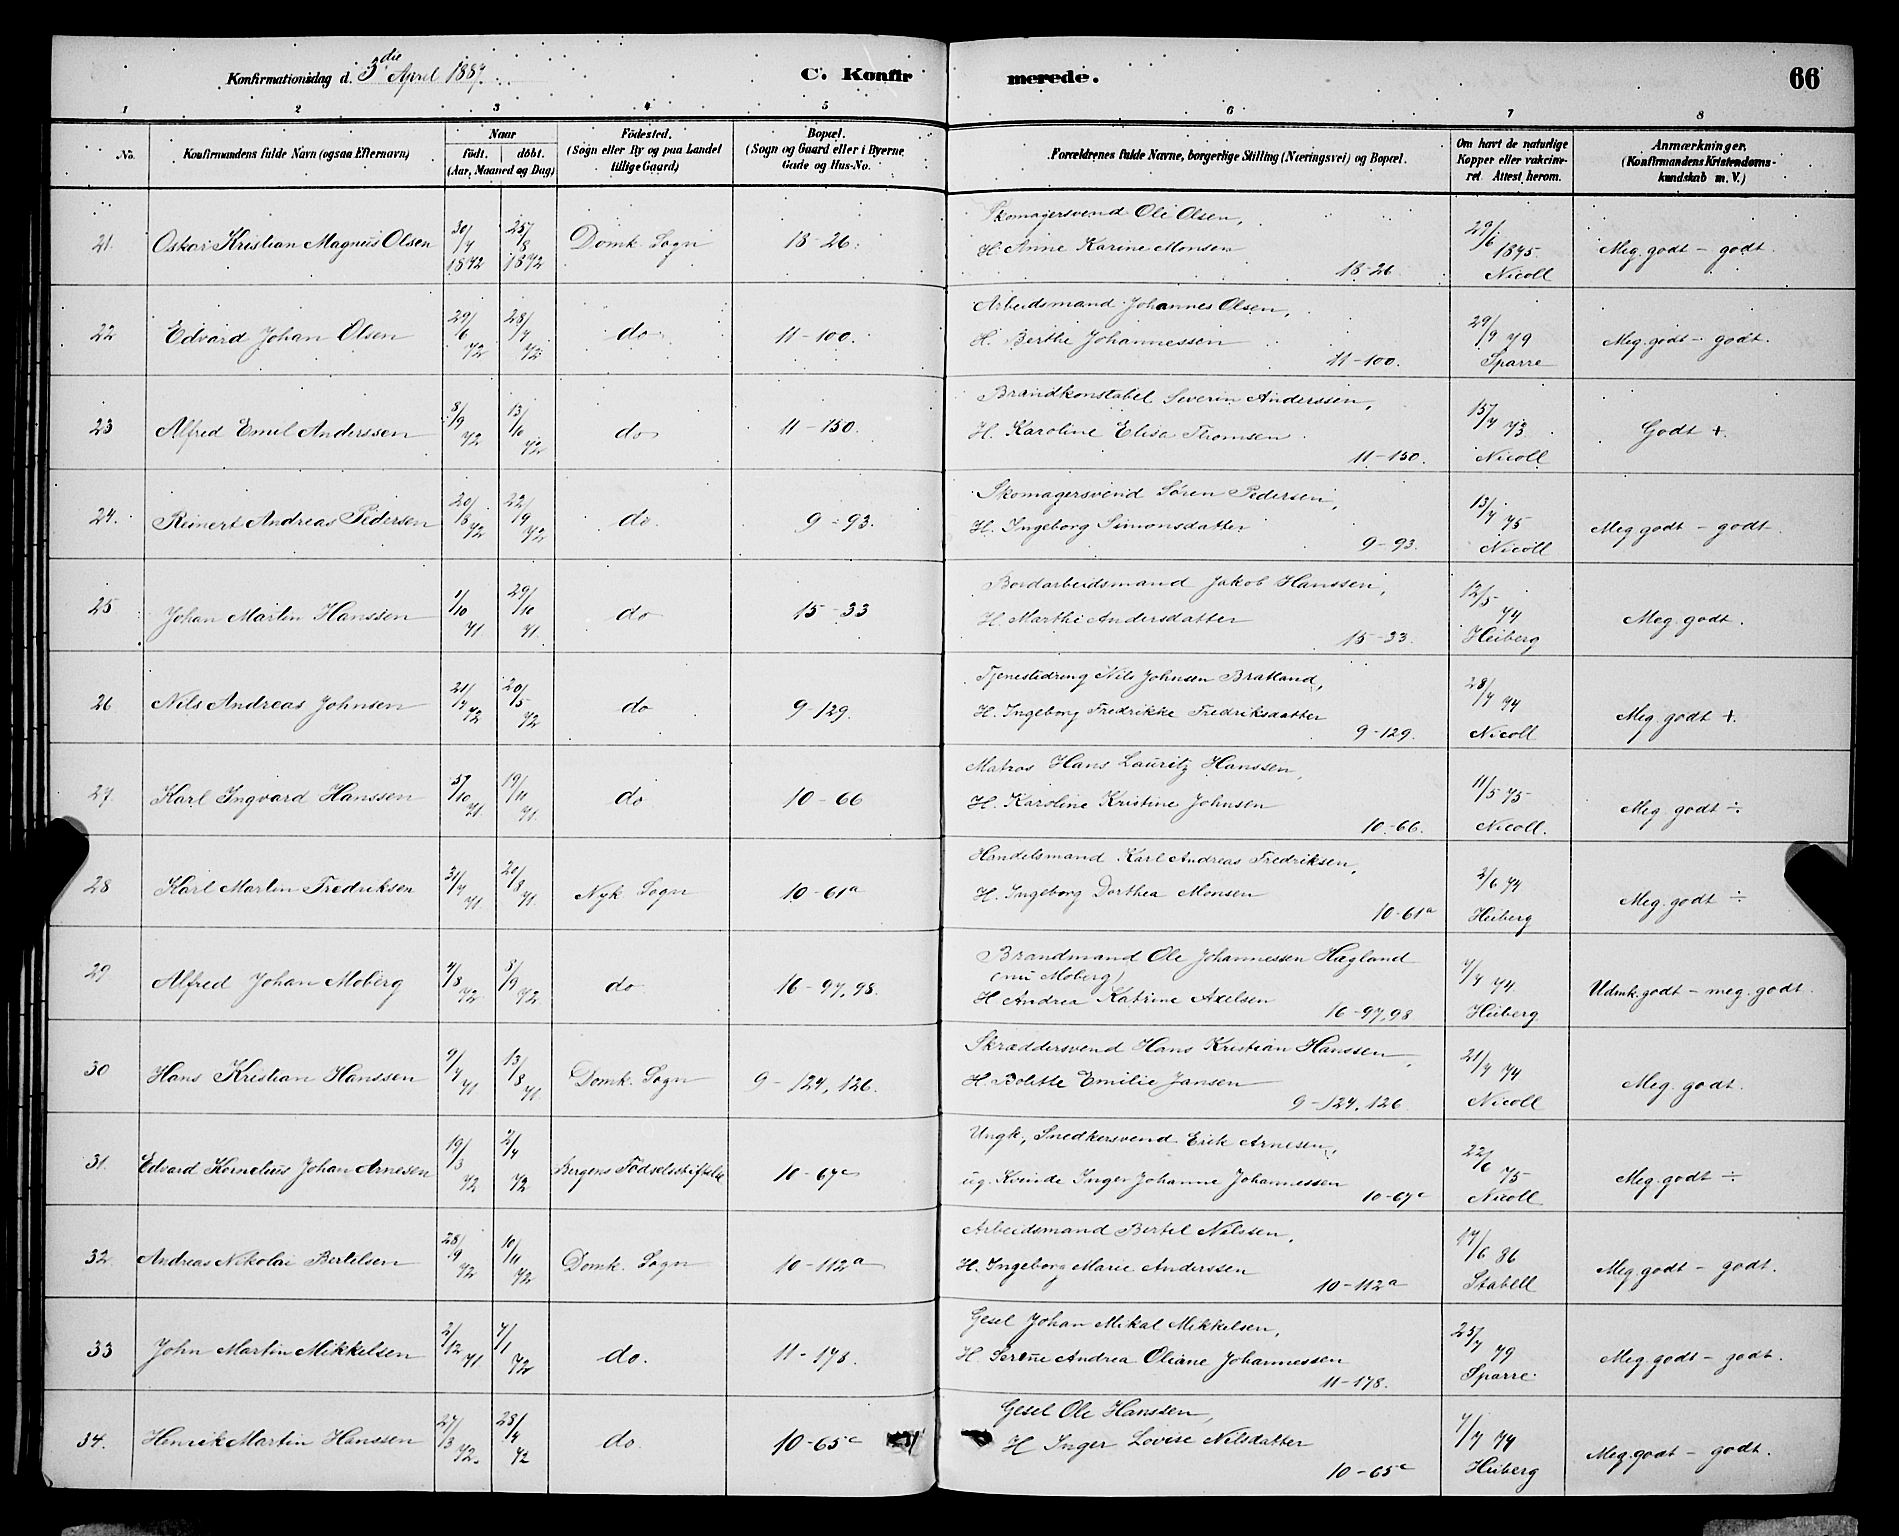 Konfirmationsdag d. 3die April 1887.
C. Konfirmerede.
66
1 2 3 4 5 6 7 8
No.
Konfirmandens fulde Navn (ogsaa Efternavn)
Naar
födt. döbt.
(Aar, Maaned og Dag)
Födested.
(Sogn eller By og paa Landet
tillige Gaard)
Bopæl.
(Sogn og Gaard eller i Byerne
Gade og Hus-No.
Forældrenes fulde Navne, borgerlige Stilling (Næringsvei) og Bopæl.
Om havt de naturlige
Kopper eller vakcine-
ret Attest herom.
Anmærkninger.
(Konfirmandens Kristendoms-
kundskab m. V.)
21. Oskar Kristian Magnus Olsen 30/7 1872 25/8 1872 Domk. Sogn 18-26.
Skomagersvend Ole Olsen,
H. Anne Karine Monsen
18-26.
29/6 1875 Nicoll
Meg. godt - godt.
22 Edvard Johan Olsen 29/6 72 28/7 72 do 11-100.
Arbeidsmand Johannes Olsen,
H. Berthe Johannessen
11-100.
29/9 79 Sparre
Meg. godt - godt.
23 Alfred Emil Anderssen 8/9 72 13/10 72 do 11-150.
Brandkonstabel Severin Anderssen,
H. Karoline Elisa Thomsen
11-150.
15/7 73 Nicoll
Godt +.
24. Reinert Andreas Pedersen 72 72 do. 9-93.
Skomagersvend Søren Pedersen,
H. Ingeborg Simonsdatter
9-93.
13/7 75 Nicoll
Meg godt - godt
25 Johan Martin Hanssen 1/10 71 29/10 71 do 15-33
Bordarbeidsmand Jakob Hanssen,
H. Marthe Andersdatter
15-33.
12/5 74 Heiberg
Meg. godt.
26 Nils Andreas Johnsen 21/4 72 20/5 72 do 9-129.
Tjenestedreng Nils Johnsen Bratland,
H. Ingeborg Fredrikke Fredriksdatter
9-129.
28/7 74 Nicoll
Meg. godt +.
27. Karl Ingvard Hanssen 5/10 71 19/11 71 do 10-66
Matros Hans Lauritz Hanssen,
H. Karoline Kristine Johnsen
10-66.
11/5 75 Nicoll.
Meg godt ÷.
28 Karl Martin Fredriksen 31/7 71 20/8 71. Nyk Sogn 10-61a
Handelsmand Karl Andreas Fredriksen,
H. Ingeborg Dorthea Monsen
10-61a
2/6 74 Heiberg
Meg. godt ÷
29 Alfred Johan Moberg 4/8 72 8/9 72. do 16-97,98.
Brandmand Ole Johannessen Hægland
(nu Moberg)
H Andrea Katrine Axelsen
16-97,98
7/7 74 Heiberg
Udmk. godt - meg. godt.
30 Hans Kristian Hanssen 9/7 71 13/8 71. Domk. Sogn 9-124, 126.
Skræddersvend Hans Kristian Hanssen,
H. Bolette Emilie Jansen
9-124. 126
21/7 74 Nicoll
Meg. godt.
31. Edvard Kornelius Johan Arnesen 19/3 72 2/4 72 Bergens Fødselsstiftelse 10-67c
Ungk, Snedkersvend Erik Arnesen,
ug. Kvinde Inger Johanne Johannessen
10-67c
22/6 75 Nicoll
Meg. godt ÷
32. Andreas Nikolai Bertelsen 28/9 72 10/11 72 Domk. Sogn 10-112a
Arbeidsmand Bertel Nilssen,
H. Ingeborg Marie Anderssen
10-112a
17/6 86 Stabell
Meg. godt - godt.
33 John Martin Mikkelsen 2/12 71 7/1 72 do. 11-178.
Gesel Johan Mikal Mikkelsen,
H. Serine Andrea Oliane Johannessen
11-178.
25/7 79 Sparre.
Meg. godt - godt.
34. Henrik Martin Hanssen 27/3 72. 28/4 72 do. 10-65c
Gesel Ole Hanssen,
H Inger Lovise Nilsdatter
10-65c
7/7 74 Heiberg
Meg. godt - godt.